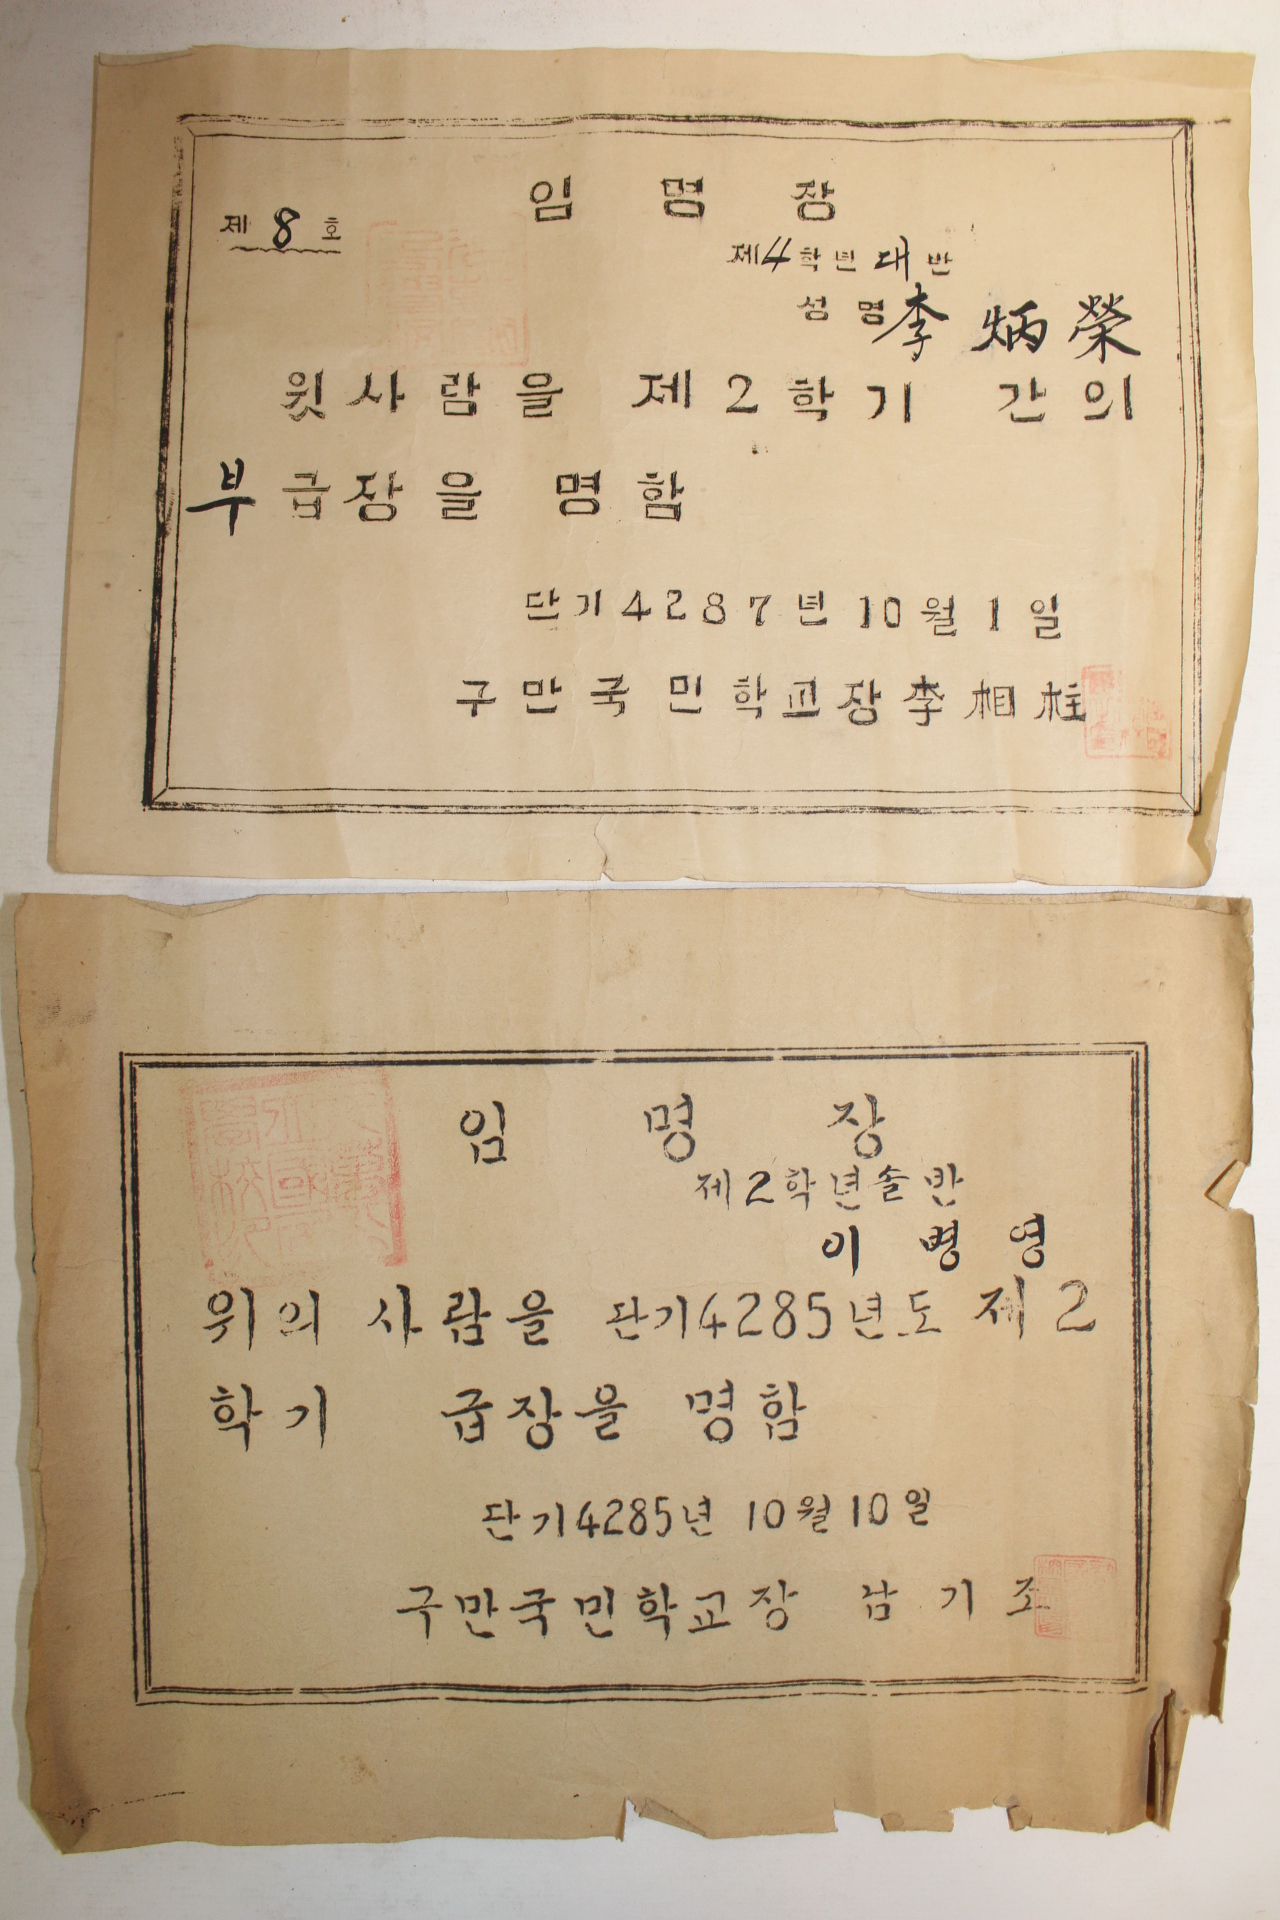 임 명 장
제 8 호
제4학년 대 반
성 명 李 炳 榮
윗사람을 제2학기 간의
부급장을 명함
단기4287년 10월 1일
구만국민학교장 李相柱
임 명 장
제2학년솔반
이 병 영
위의 사람을 단기4285년도 제2
학기 급장을 명함
단기4285년 10월10일
구만국민학교장 남 기 조